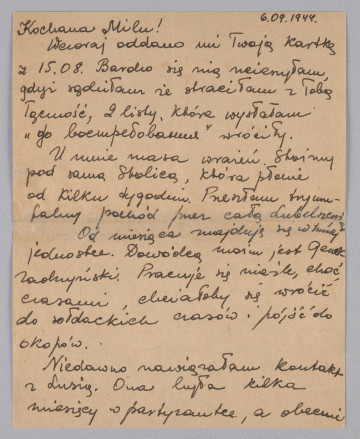 6.09.1944.
Kochana Milu!
Wczoraj oddano mi Twoją kartkę
z 15.08. Bardzo się nią ucieszyłam,
gdyż sądziłam że straciłam z Tobą
łączność, 2 listy, które wysłałam
"до востребования" wróciły.
U mnie masa wrażeń. Stoimy
pod samą Stolicą, która płonie
od kilku tygodni. Przeszłam tryum-
falny pochód przez całą Lubelszczyznę
Od miesiąca znajduję się w innej
jednostce. Dowódcą moim jest
Pracuje się nieźle, choć
czasami, chciałoby się wrócić
do sołdackich czasów i pójść do
okopów.
Niedawno nawiązałam kontakt
z Lusią. Ona była kilka
miesięcy w partyzantce, a obecnie